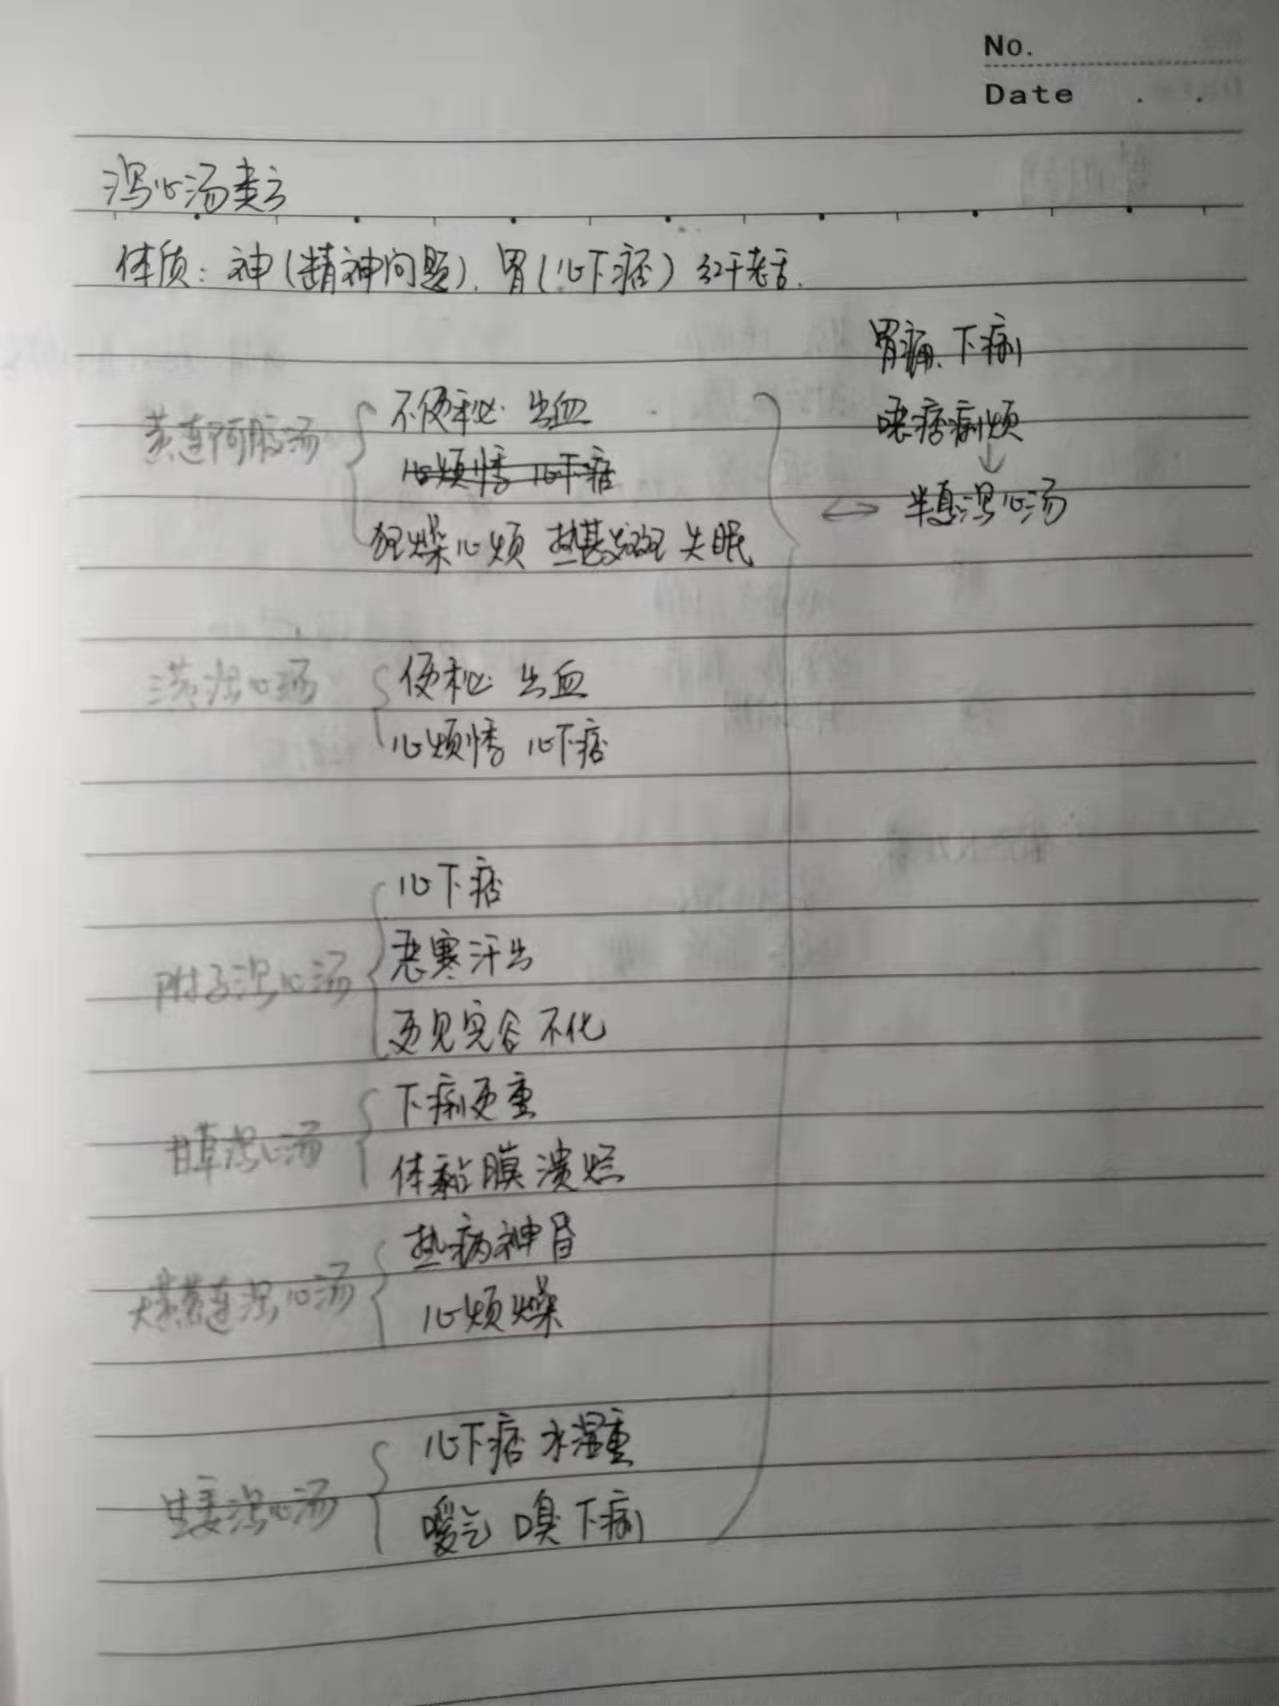 No.
Date . .
泻心汤类方
体质：神（精神问题）、胃（心下痞）红干老舌．
胃痛、下痢
呕痞痢烦
↓
半夏泻心汤
黄连阿胶汤
不便秘 出血
心烦悸 心下痞
狂燥心烦 热甚发斑 失眠
三黄泻心汤
便秘 出血
心烦悸 心下痞
附子泻心汤
心下痞
恶寒汗出
更见完谷不化
甘草泻心汤
下痢更重
体黏膜溃烂
大黄黄连泻心汤
热病神昏
心烦燥
生姜泻心汤
心下痞 水湿重
嗳气 嗅下痢